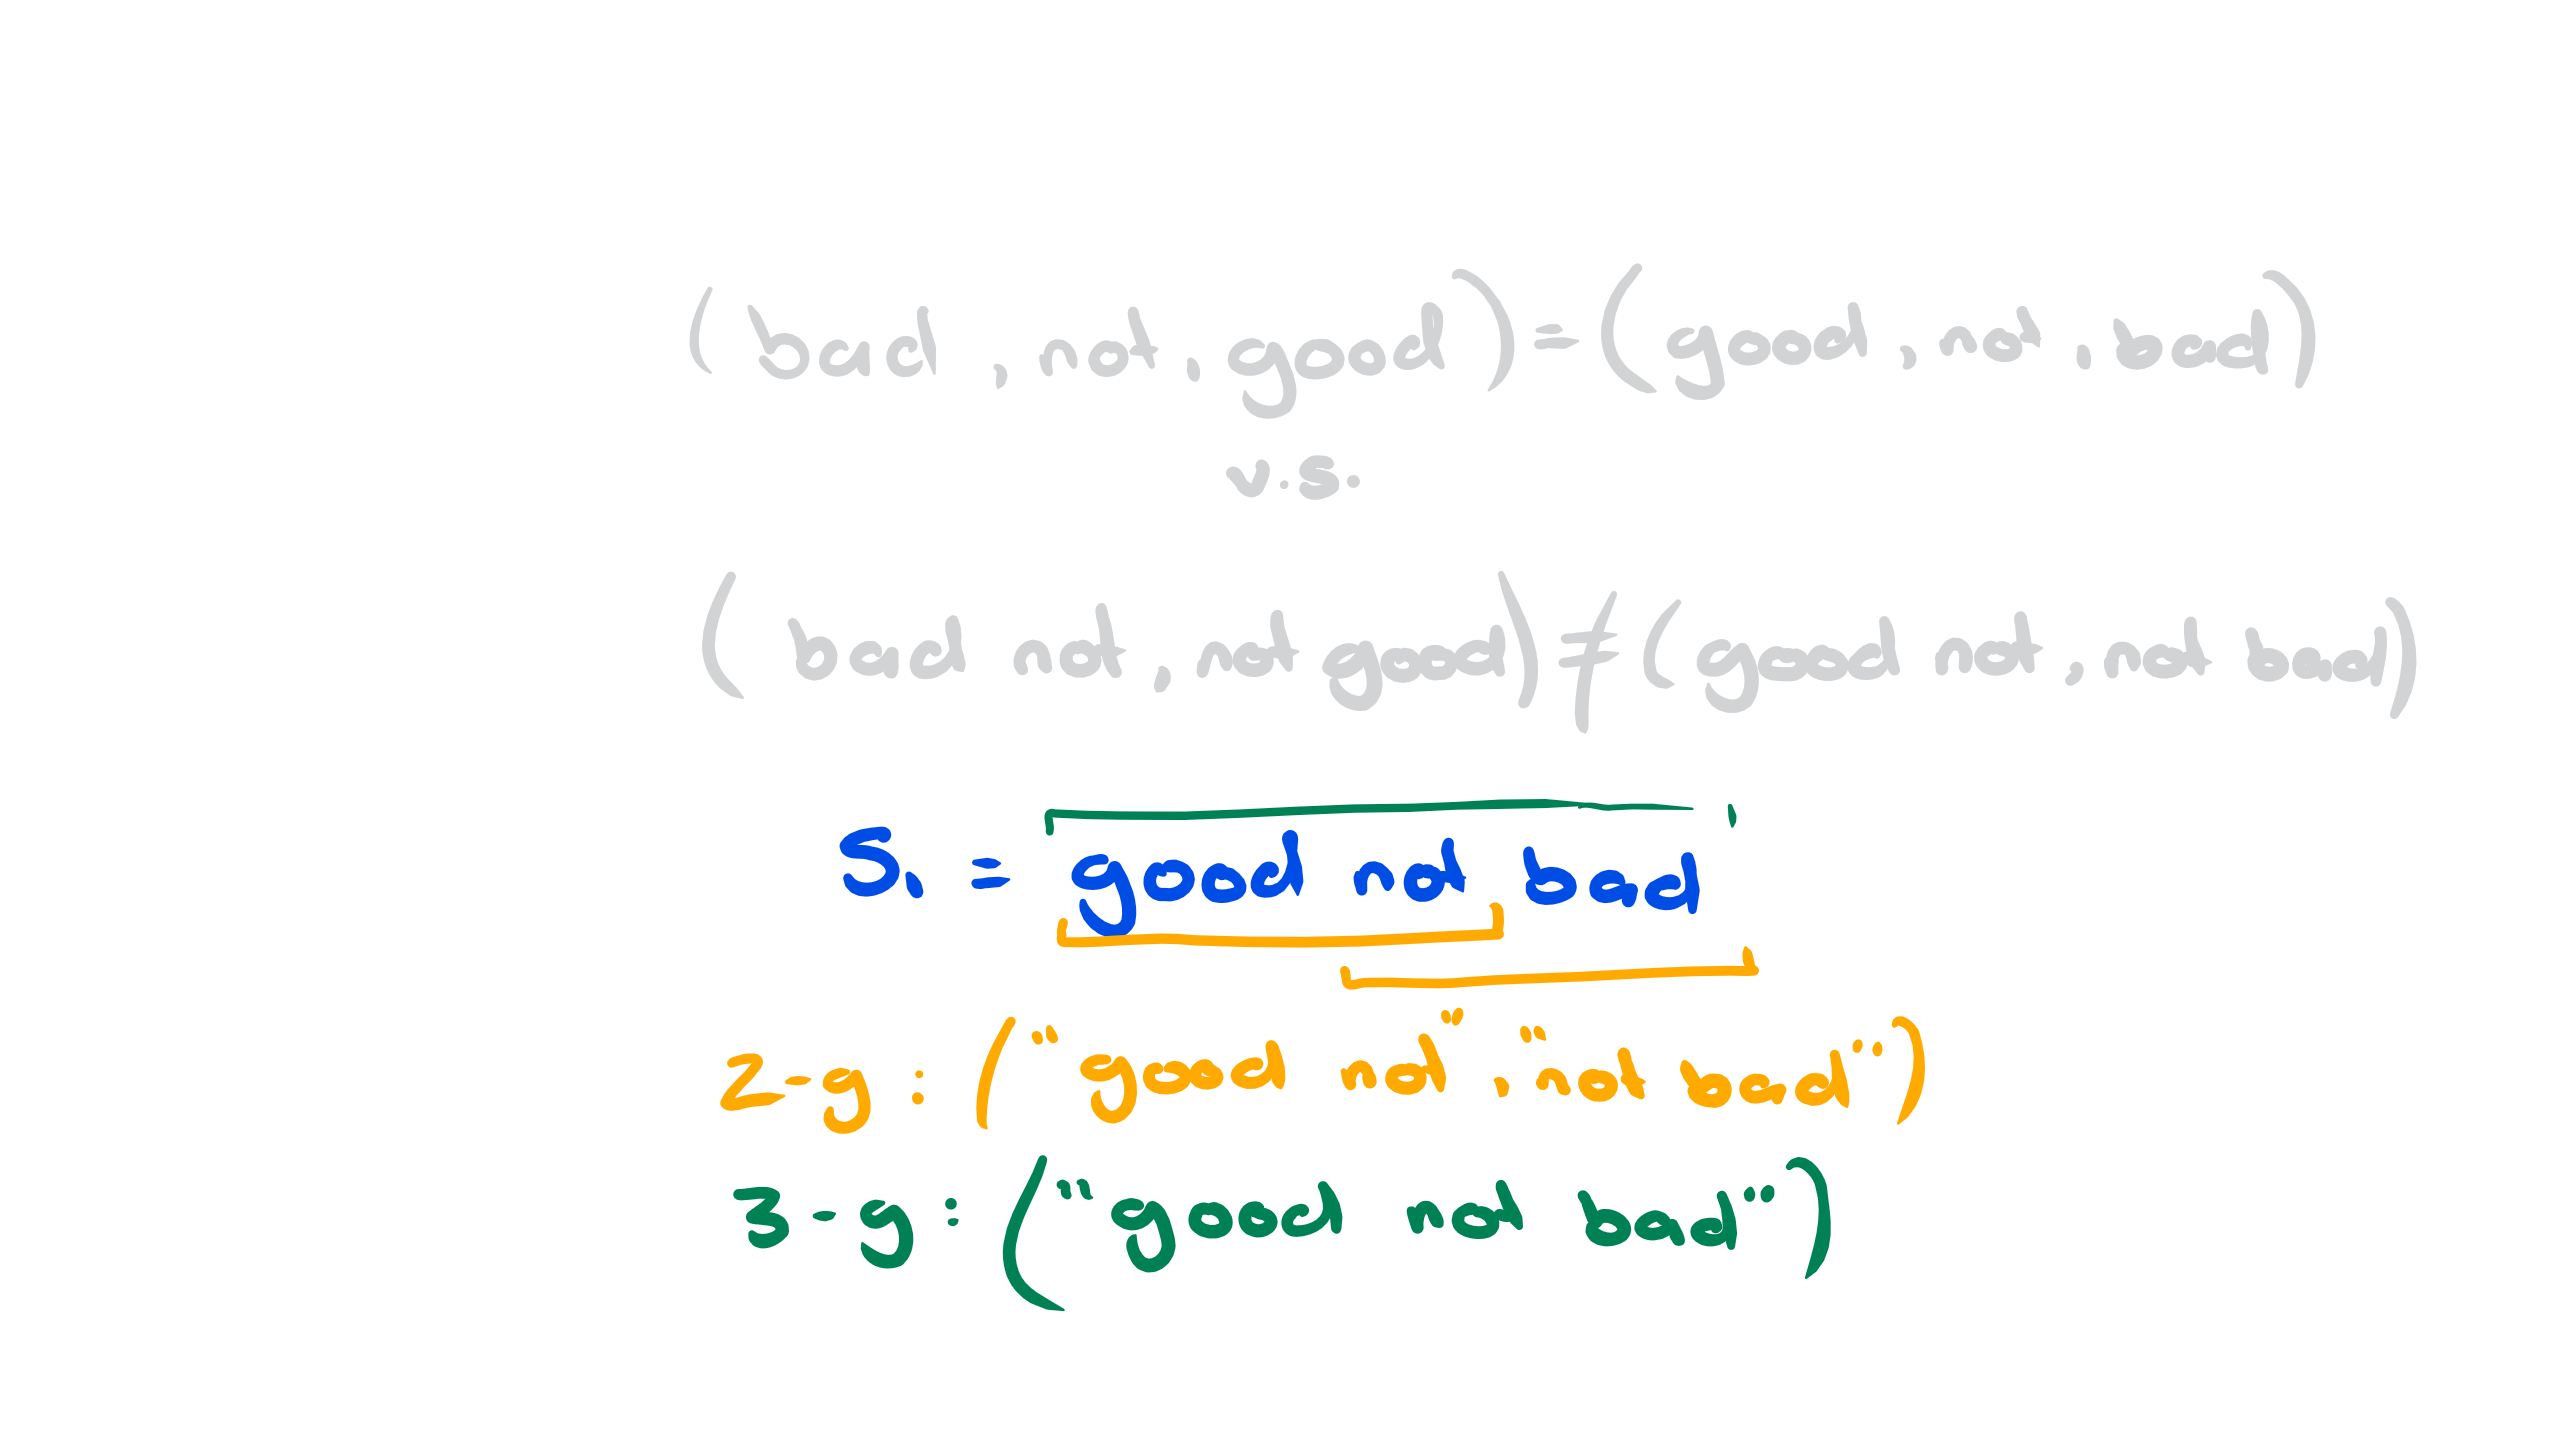 (bad, not, good) = (good, not, bad)
v.s.
(bad not, not good) ≠ (good not, not bad)
S₁ = good not bad
2-g: ("good not", "not bad")
3-g: ("good not bad")